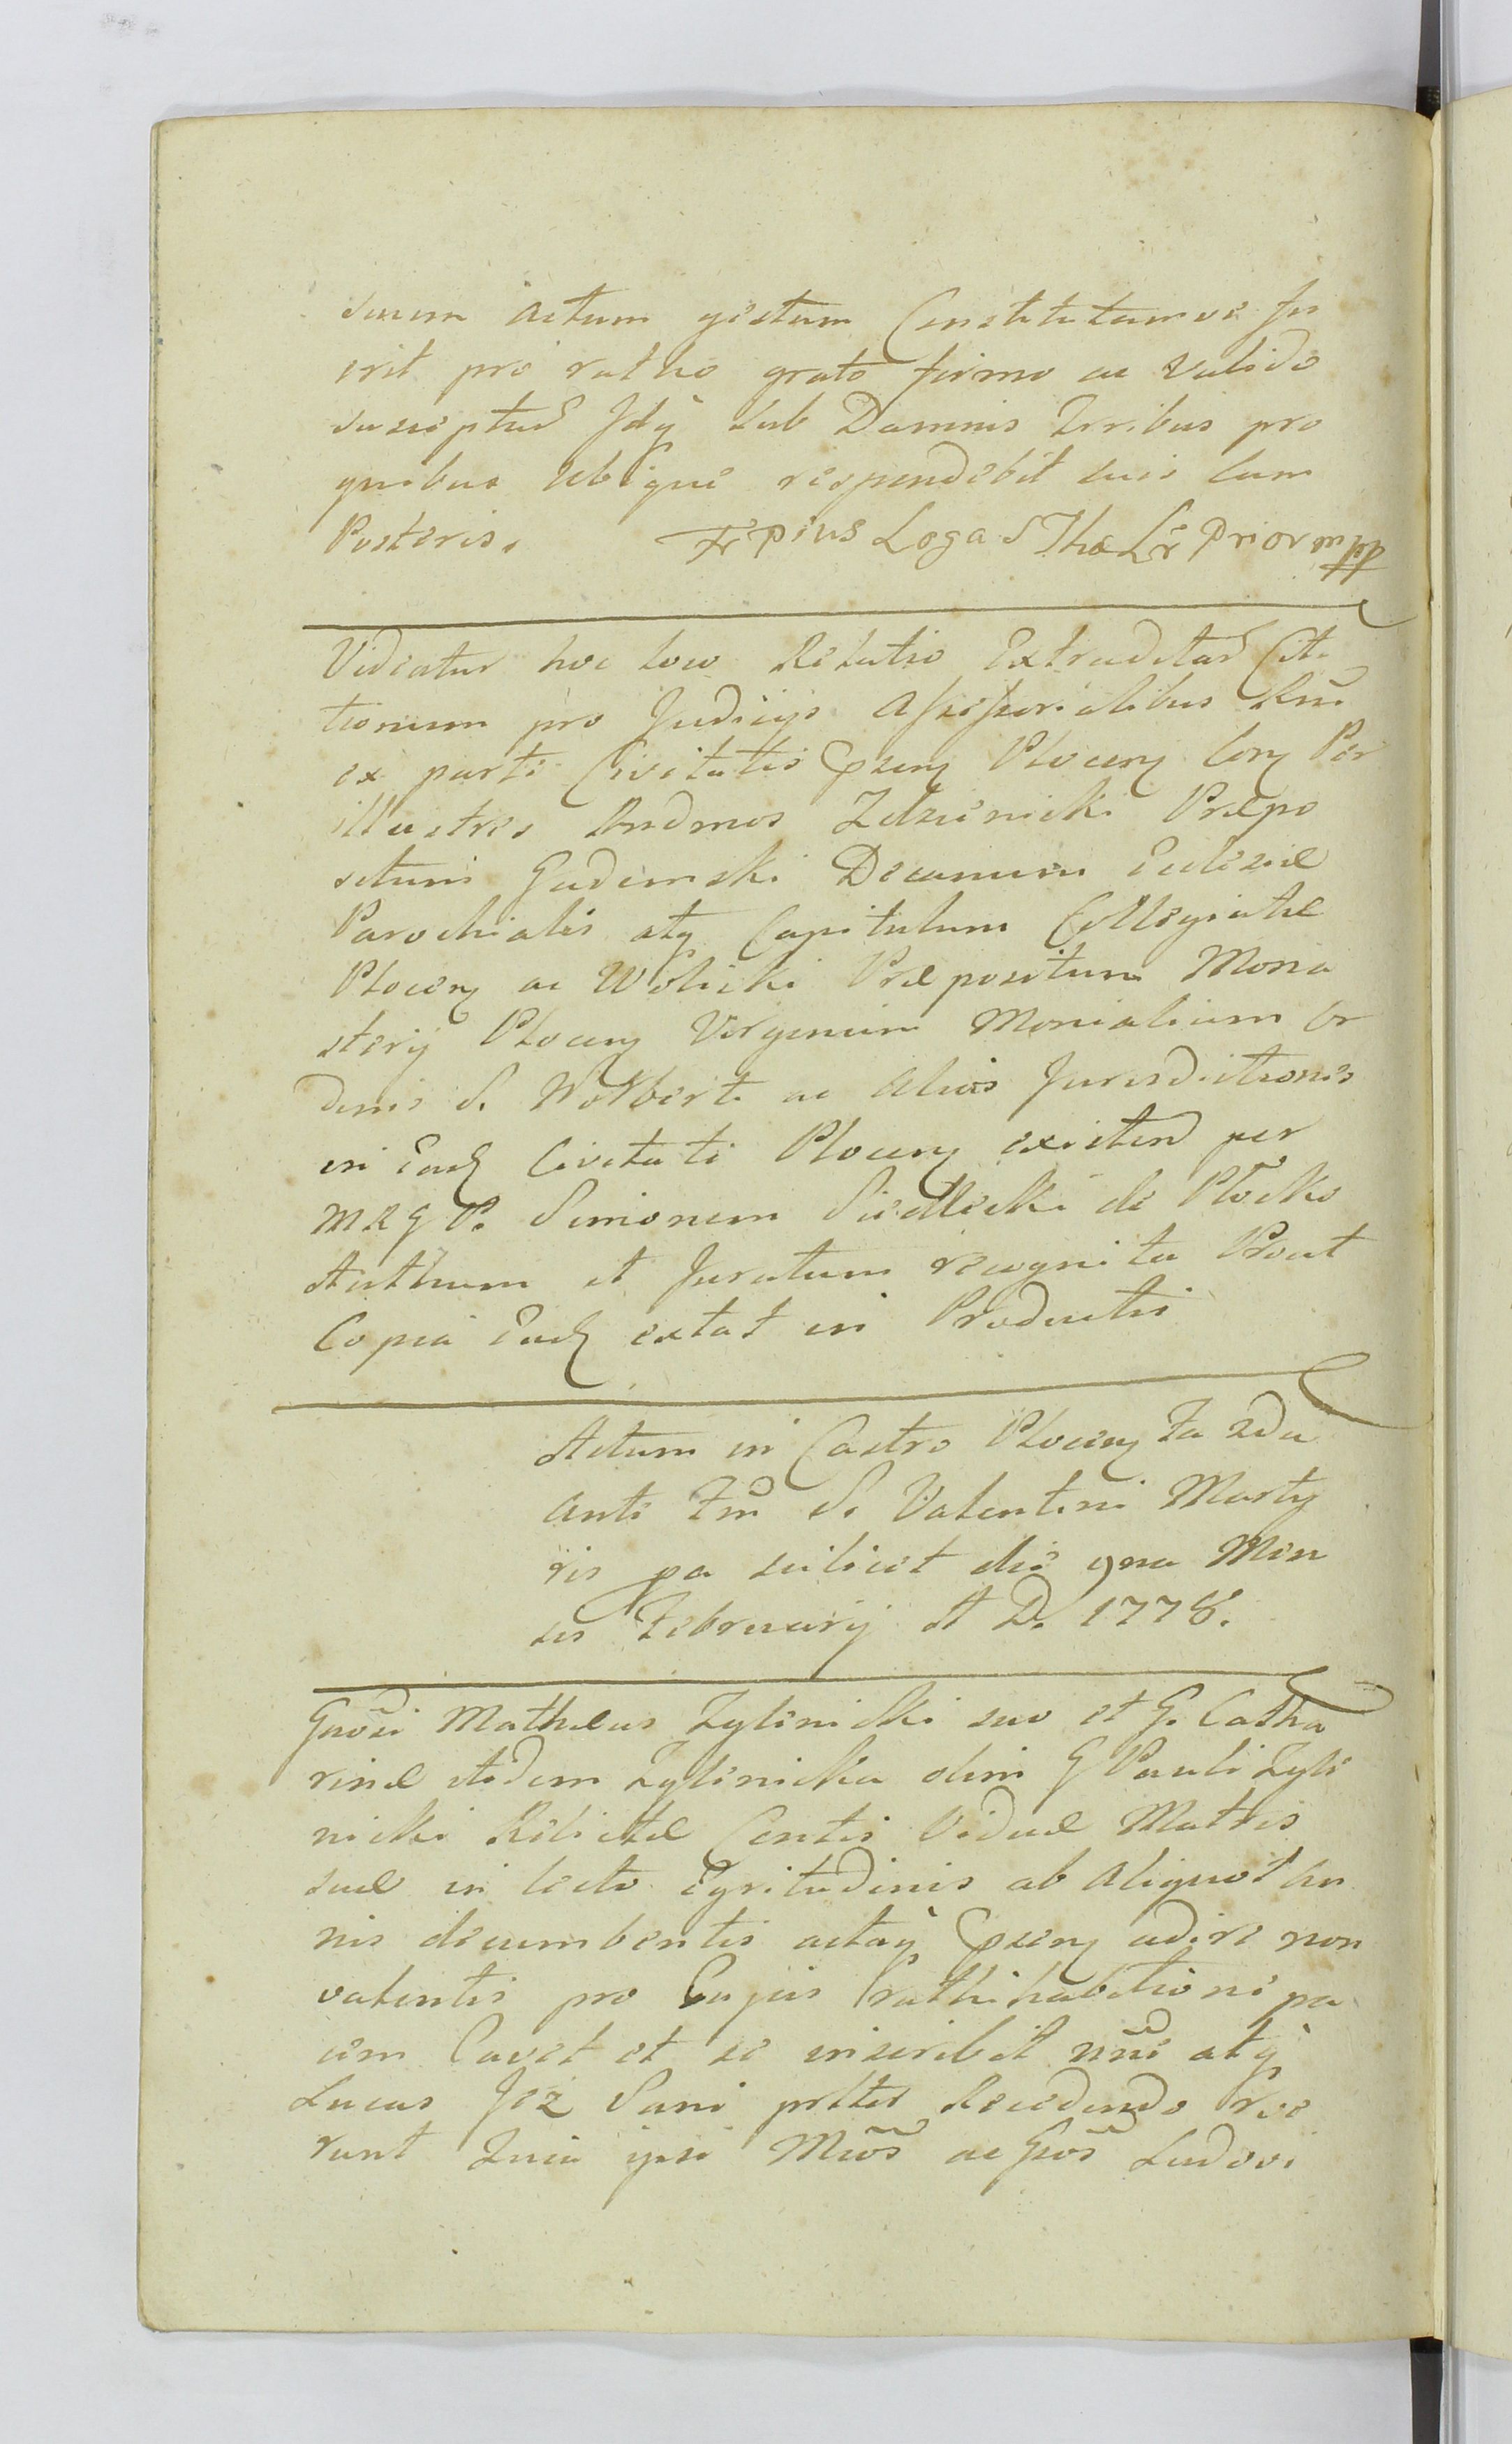 suum actum gestum Constitutumve fu
erit pro ratho grato firmo ac valido
suscepturꝰ Idq́ sub Damnis Irribus pro
quibus ubique respondebit suis cum
Posteris. Fr Pius Loga S Thæ Lr Prior mpp
Videatur hoc loco Relatio Extraditarꝰ Cita
tionum pro Judicijs Assessorialibus Rni
ex parte Civitatis Plocen Cen Per
illustres Rndmos Zdzienicki Præpo
situm Gadomski Decanum Eclesiæ
Parochialis atq Capitulum Collegiatæ
Plocen ac Wolicki Præpositum Mona
sterij Plocen Virginum Monialium Or
dinis S. Norberti ac Alios Jurisdictionis
in Ead Civitate Plocen existen per
M R G P. Simonem Siedlecki de Płocko
Authum et Juratum recognita Prout
Copia Ead extat in Productis
Actum in Castro Plocen Fa 2da
ante Fm S. Valentini Marty
ris pa scilicet die 9na Men
sis Februarij A D. 1778.
Gnosi Mathæus Zylinicki suo et G. Catha
rinæ itidem Zylinicka olim G Pauli Zyli
nicki Relictæ Contis Viduæ Matris
suæ in lecto Egritudinis ab Aliquot An
nis decumbentis actaq́ adire non
valentis pro Cujus Rathihabitione pa
cem Cavet et se inscribit nne atq́
Lucas Jez Sani Recedendo roe
runt Quia ipsi Mcos ac Gsos Ludovi